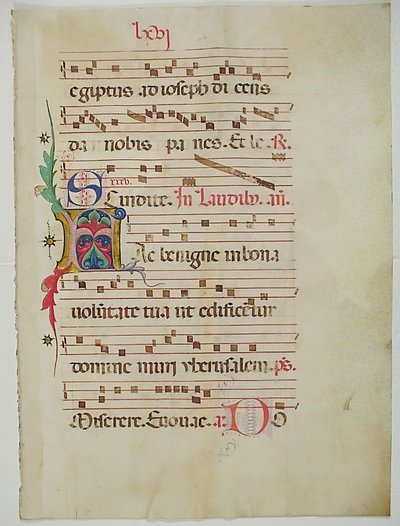 lxvj
egiptus ad ioseph di cens
da nobis pa nes. Et le. R.
Scindite. In Laudib. añ.
Fac benigne in bona
volūtate tua ut edificēt̄ur
domine muri yherusalem. ps.
Miserere. Euouae. a. Do